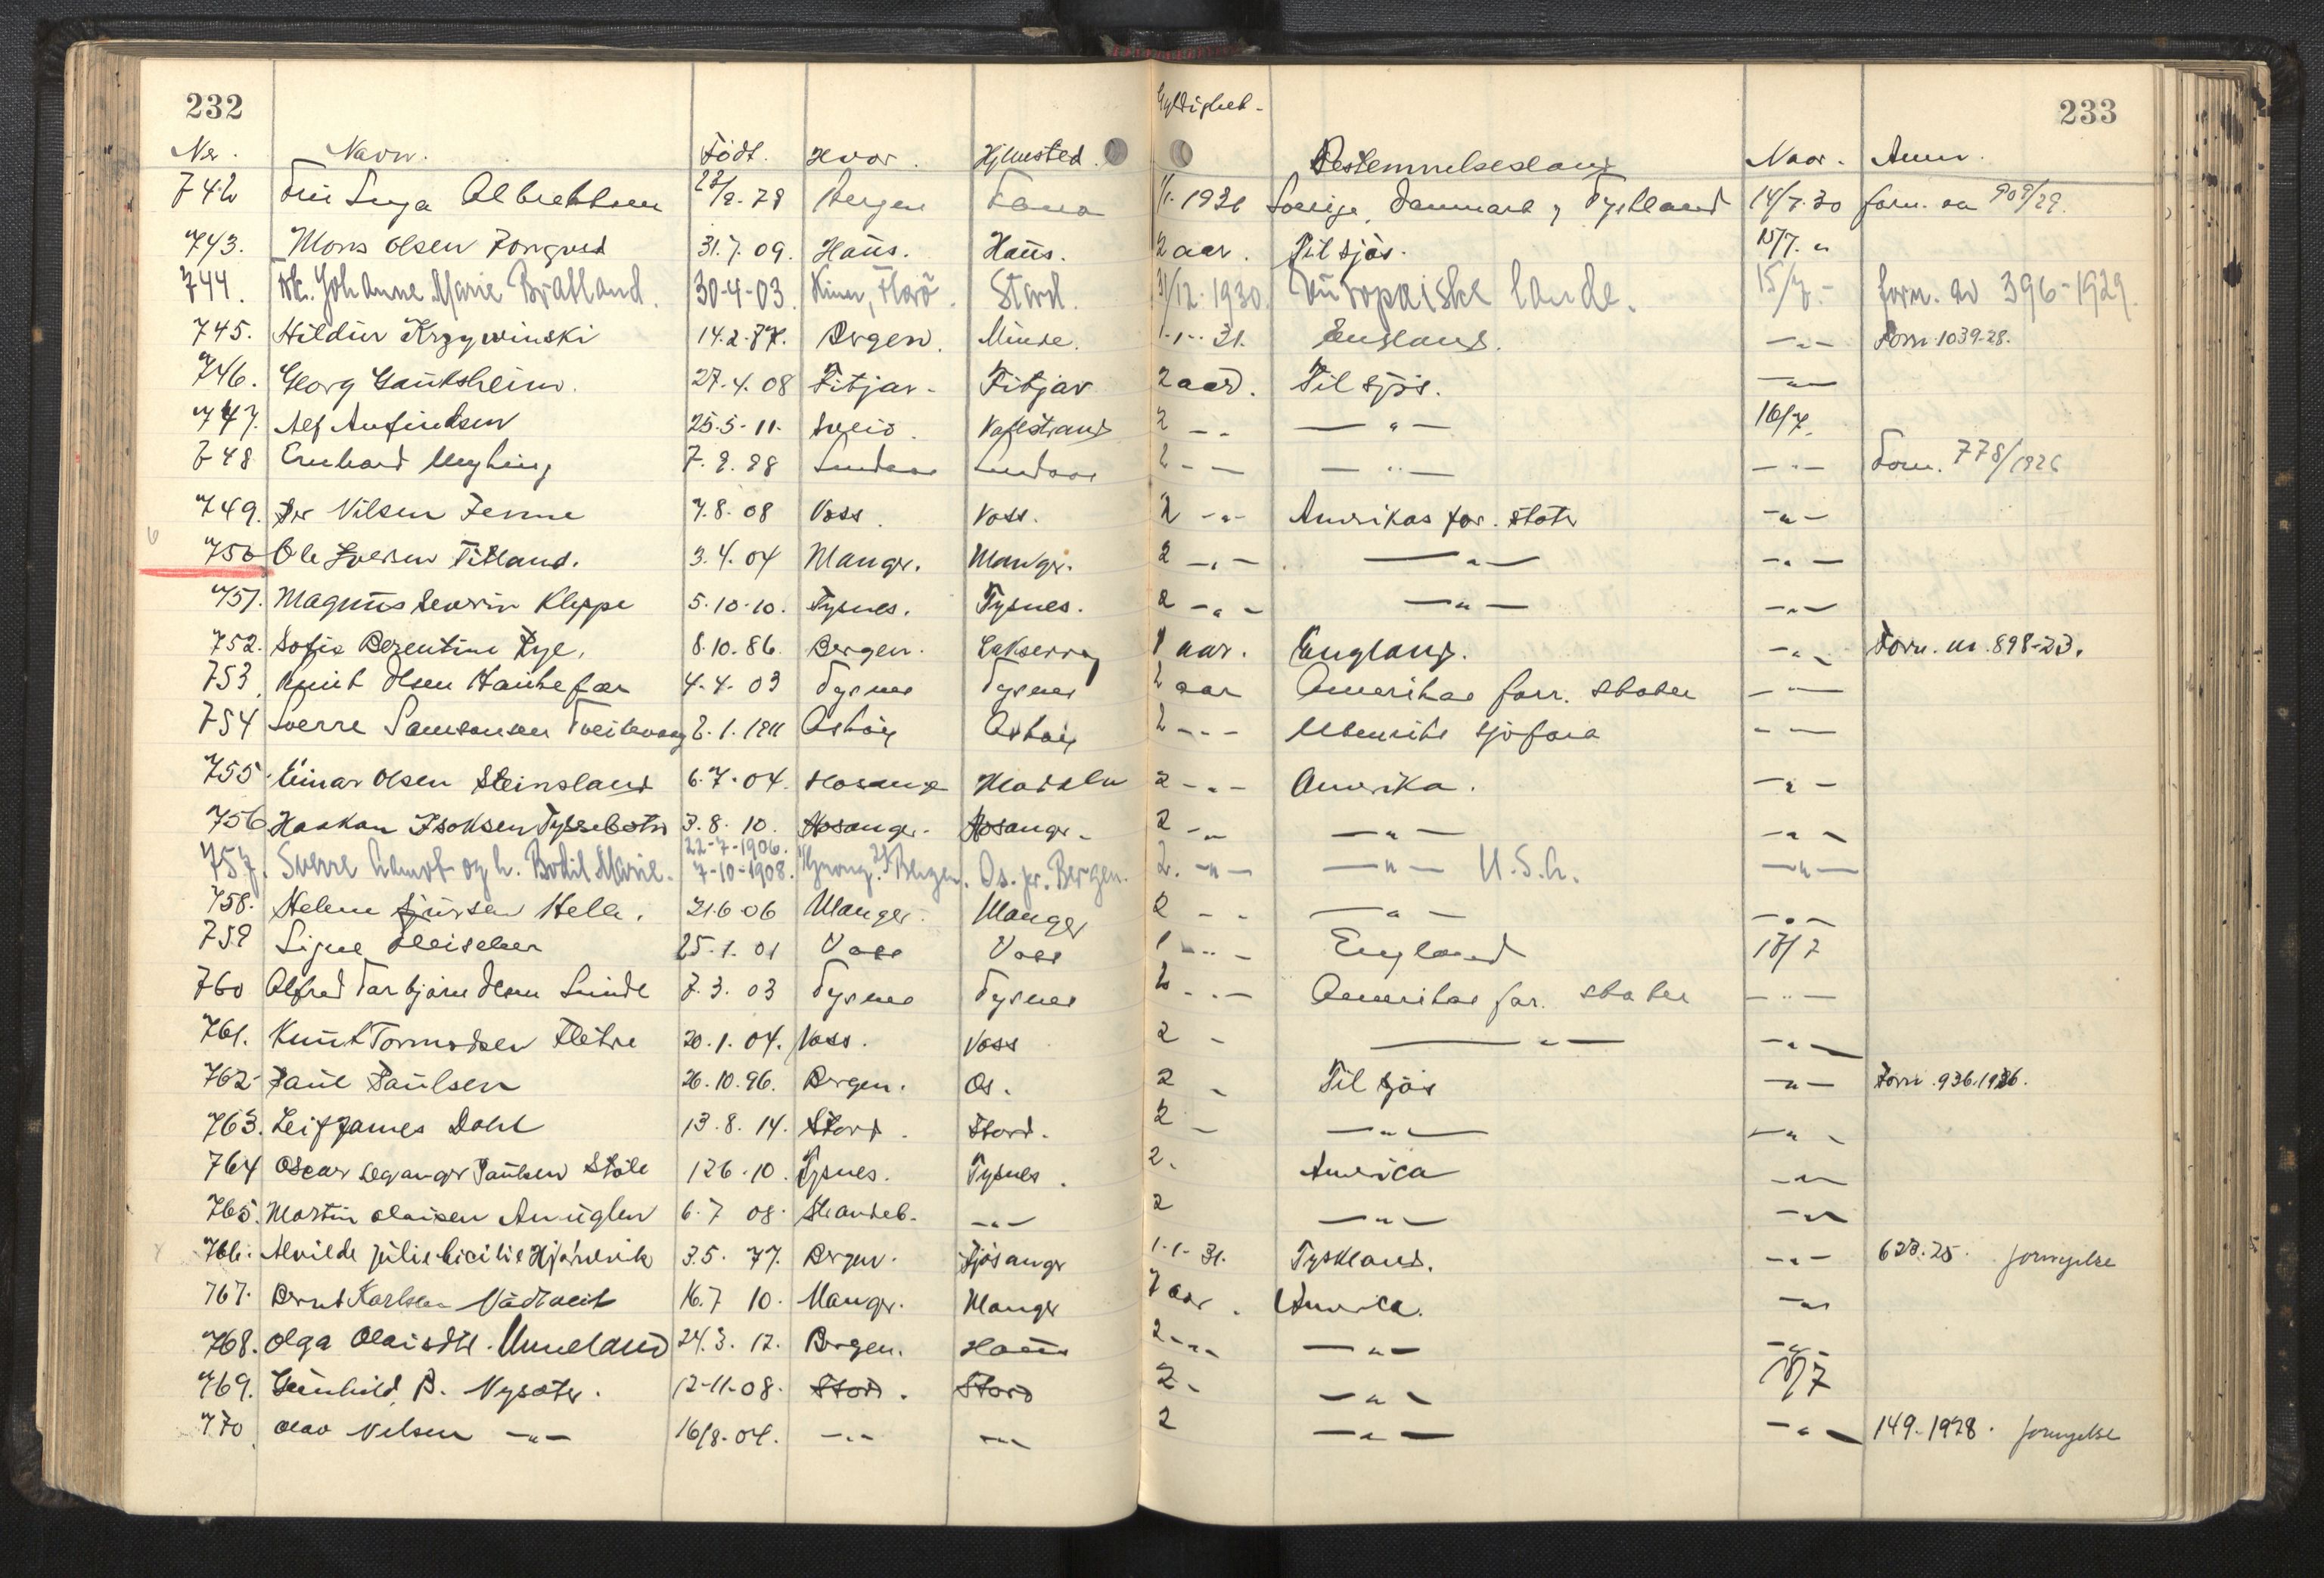 232 Gyldighet- 233
Nr. Navn. Födt. Hvor. Hjemsted. Bestemmelsesland Naar. Anm.
742 Fru Inga Albrektsen 28/9-78 Bergen Fana 1/1-1931 Sverige, Danmark, Tyskland 14/7-30 forn. av 909/29.
743. Mons Olsen 31.7.09. Haus. Haus. 2 aar. Til sjös. 15/7. "
744. Frk. Johanne Marie Bratland. 30-4-03. Kinn, Florö. Stord. 31/12-1930. Europæiske lande. 15/7- forn. av 396-1929.
745. Hildur Krzywinski 14.2.87. Bergen. Minde. 1-1-31. England. -"- Forn. 1039-28.
746. Georg Gauksheim. 27.4.08 Fitjar- Fitjar 2 aar. Til sjös. -"-
747. Alf Anfindsen 25.5-11. Sveio. Valestrand 2 -"- -"- 16/7.
748 Myhling 7.9.98 Lindaas Lindaas 2 -"- -"- -"- Forn. 778/1926
749. Per Nilsen 7.8.08 Voss. Voss. 2 -"- Amerikas for. stater -"-
750 Ole Iversen Titland. 3.4.04 Manger. Manger. 2 -"- -"- -"-
751. Magnus Severin Kleppe 5.10.10. Tysnes. Tysnes. 2 -"- -"- -"-
752. Sofie Berentine Rye. 8.10.86. Bergen. Laksevaag 1 aar. England. -"- Forn. nr. 898-23.
753. Knut Olsen Haukefær 4.4.03 Tysnes Tysnes 2 aar Amerikas forr. stater -"-
754 Sverre Samsonsen Tveitevaag 2.1.1911 Asköy Asköy 2 -"- Utenriks sjöfart -"-
755. Einar Olsen Steinsland 6.7.04. Hosanger Modalen 2 -"- Amerika. -"-
756 Haakon Isaksen Tyssebotn 3.8.10. Hosanger. Hosanger. 2 -"- -"- -"-
22-7-1906.
757. Sverre og h. Bodil Marie. 7-10-1908. Bergen. Os. pr. Bergen. 2. -"- -"- U.S.A. -"-
758. Helene Sjursen Helle. 21.6.06 Manger. Manger 2 - - -"- -"-
759 Signe Fleischer 25.1.01 Voss Voss 1 -"- England 17/7
760 Alfred Torbjörn Olsen Lunde 7.3.03 Tysnes Tysnes 2 -"- Amerikas for. stater -"-
761. Knut Tormodsen Fletre 20.1.04. Voss. Voss 2 - -"- -"-
762- Paul Paulsen 26.10.96. Bergen. Os. 2 - Til sjös -"- Forn. 936.1926.
763. Leif James Dahl 13.8.14. Stord. Stord. 2 - -"- -"-
764 Oscar Paulsen Stöle 12.6.10. Tysnes. Tysnes. 2. America -"-
765. Martin Olaisen Anuglen 6.7 08. Strandeb. -"- 2 -"- -"-
766. Alvilde Julie 3.5.77. Bergen. Fjösanger 1-1-31. Tyskland. -"- 623.25. fornyelse
767. Bernt Karlsen Vådtveit 16.7 10. Manger. Manger 2 aar. America. -"-
768. Olga Olaisdtr. Unneland 24.3.12. Bergen. Haus 2 -"- -"- -"-
769. Gunhild P. Nysæter. 12-11-08. Stord. Stord 2 - -"- 18/7
770. Olav Nilsen -"- 16/8-04. -"- -"- 2 -"- -"- 149-1928. fornyelse